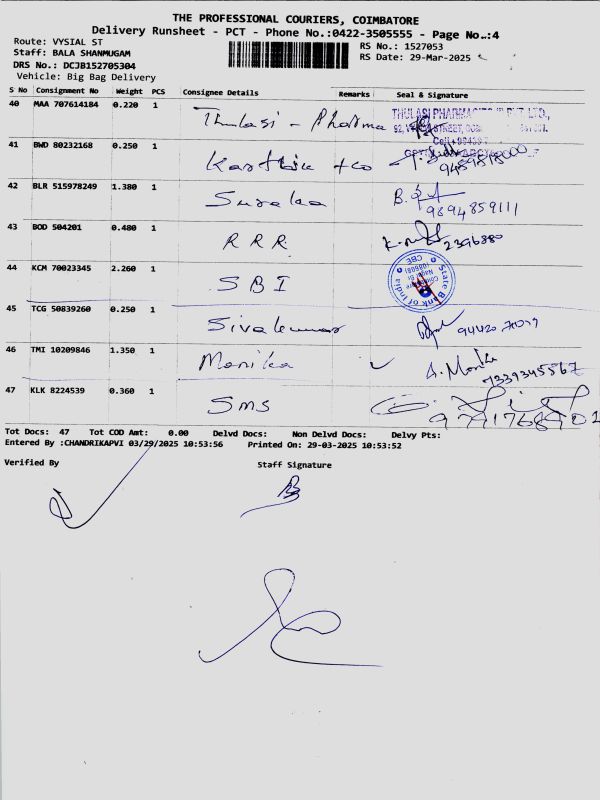 THE PROFESSIONAL COURIERS, COIMBATORE
Delivery Runsheet - PCT - Phone No.:0422-3505555 - Page No.:4
Route: VYSIAL ST
RS No.: 1527053
Staff: BALA SHANMUGAM
RS Date: 29-Mar-2025
DRS No.: DCJB152705304
Vehicle: Big Bag Delivery
S No Consignment No Weight PCS Consignee Details Remarks Seal & Signature
40 MAA 707614184 0.220 1 Thulasi - Pharma
THULASI PHARMACIES
41 BWD 80232168 0.250 1 Karthik + co
42 BLR 515978249 1.380 1 Sureka B. 9894859111
43 BOD 504201 0.480 1 RRR 2396380
44 KCM 70023345 2.260 1 SBI
State Bank of India
CBE
45 TCG 50839260 0.250 1 Sivakumar
46 TMI 10209846 1.350 1 Monika 7339345567
47 KLK 8224539 0.360 1 SMS
Tot Docs: 47 Tot COD Amt: 0.00 Delvd Docs: Non Delvd Docs: Delvy Pts:
Entered By :CHANDRIKAPVI 03/29/2025 10:53:56 Printed On: 29-03-2025 10:53:52
Verified By Staff Signature